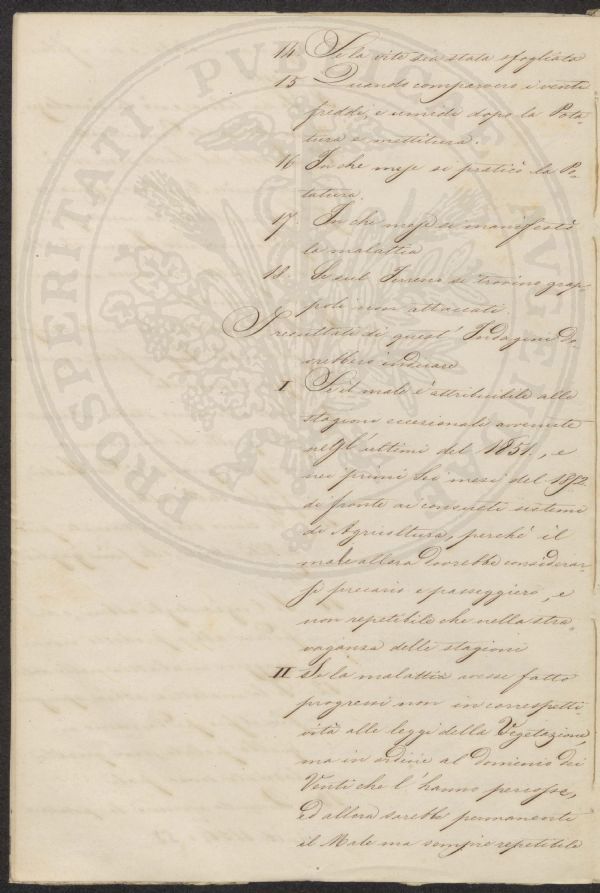 14. Se la vite sia stata sfogliata
15 Quando comparvero i venti
freddi, e umidi dopo la Pota-
tura e mettitura.
16 In che mese si praticò la Po-
tatura.
17. In che mese si manifestò
la malattia
18. Se sul Terreno si trovino grap-
poli non attaccati.
I resultati di quest' Indagini do-
vrebbero indicare
I Se il male è attribuibile alle
stagioni eccezionali avvenute
negl' ultimi del 1851., e
nei primi sei mesi del 1852.
di fronte ai consueti sistemi
di Agricoltura, perché il
male allora dovrebbe considerar-
si precario e passeggiero, e
non repetibile che nella stra-
vaganza delle stagioni
II Se la malattia avesse fatto
progressi non in correspetti-
vità alle leggi della Vegetazione,
ma in ordine al dominio dei
Venti che l' hanno percosse,
ed allora sarebbe permanente
il Male ma sempre repetibile
PROSPERITATI PUBLICAE AUGENDAE